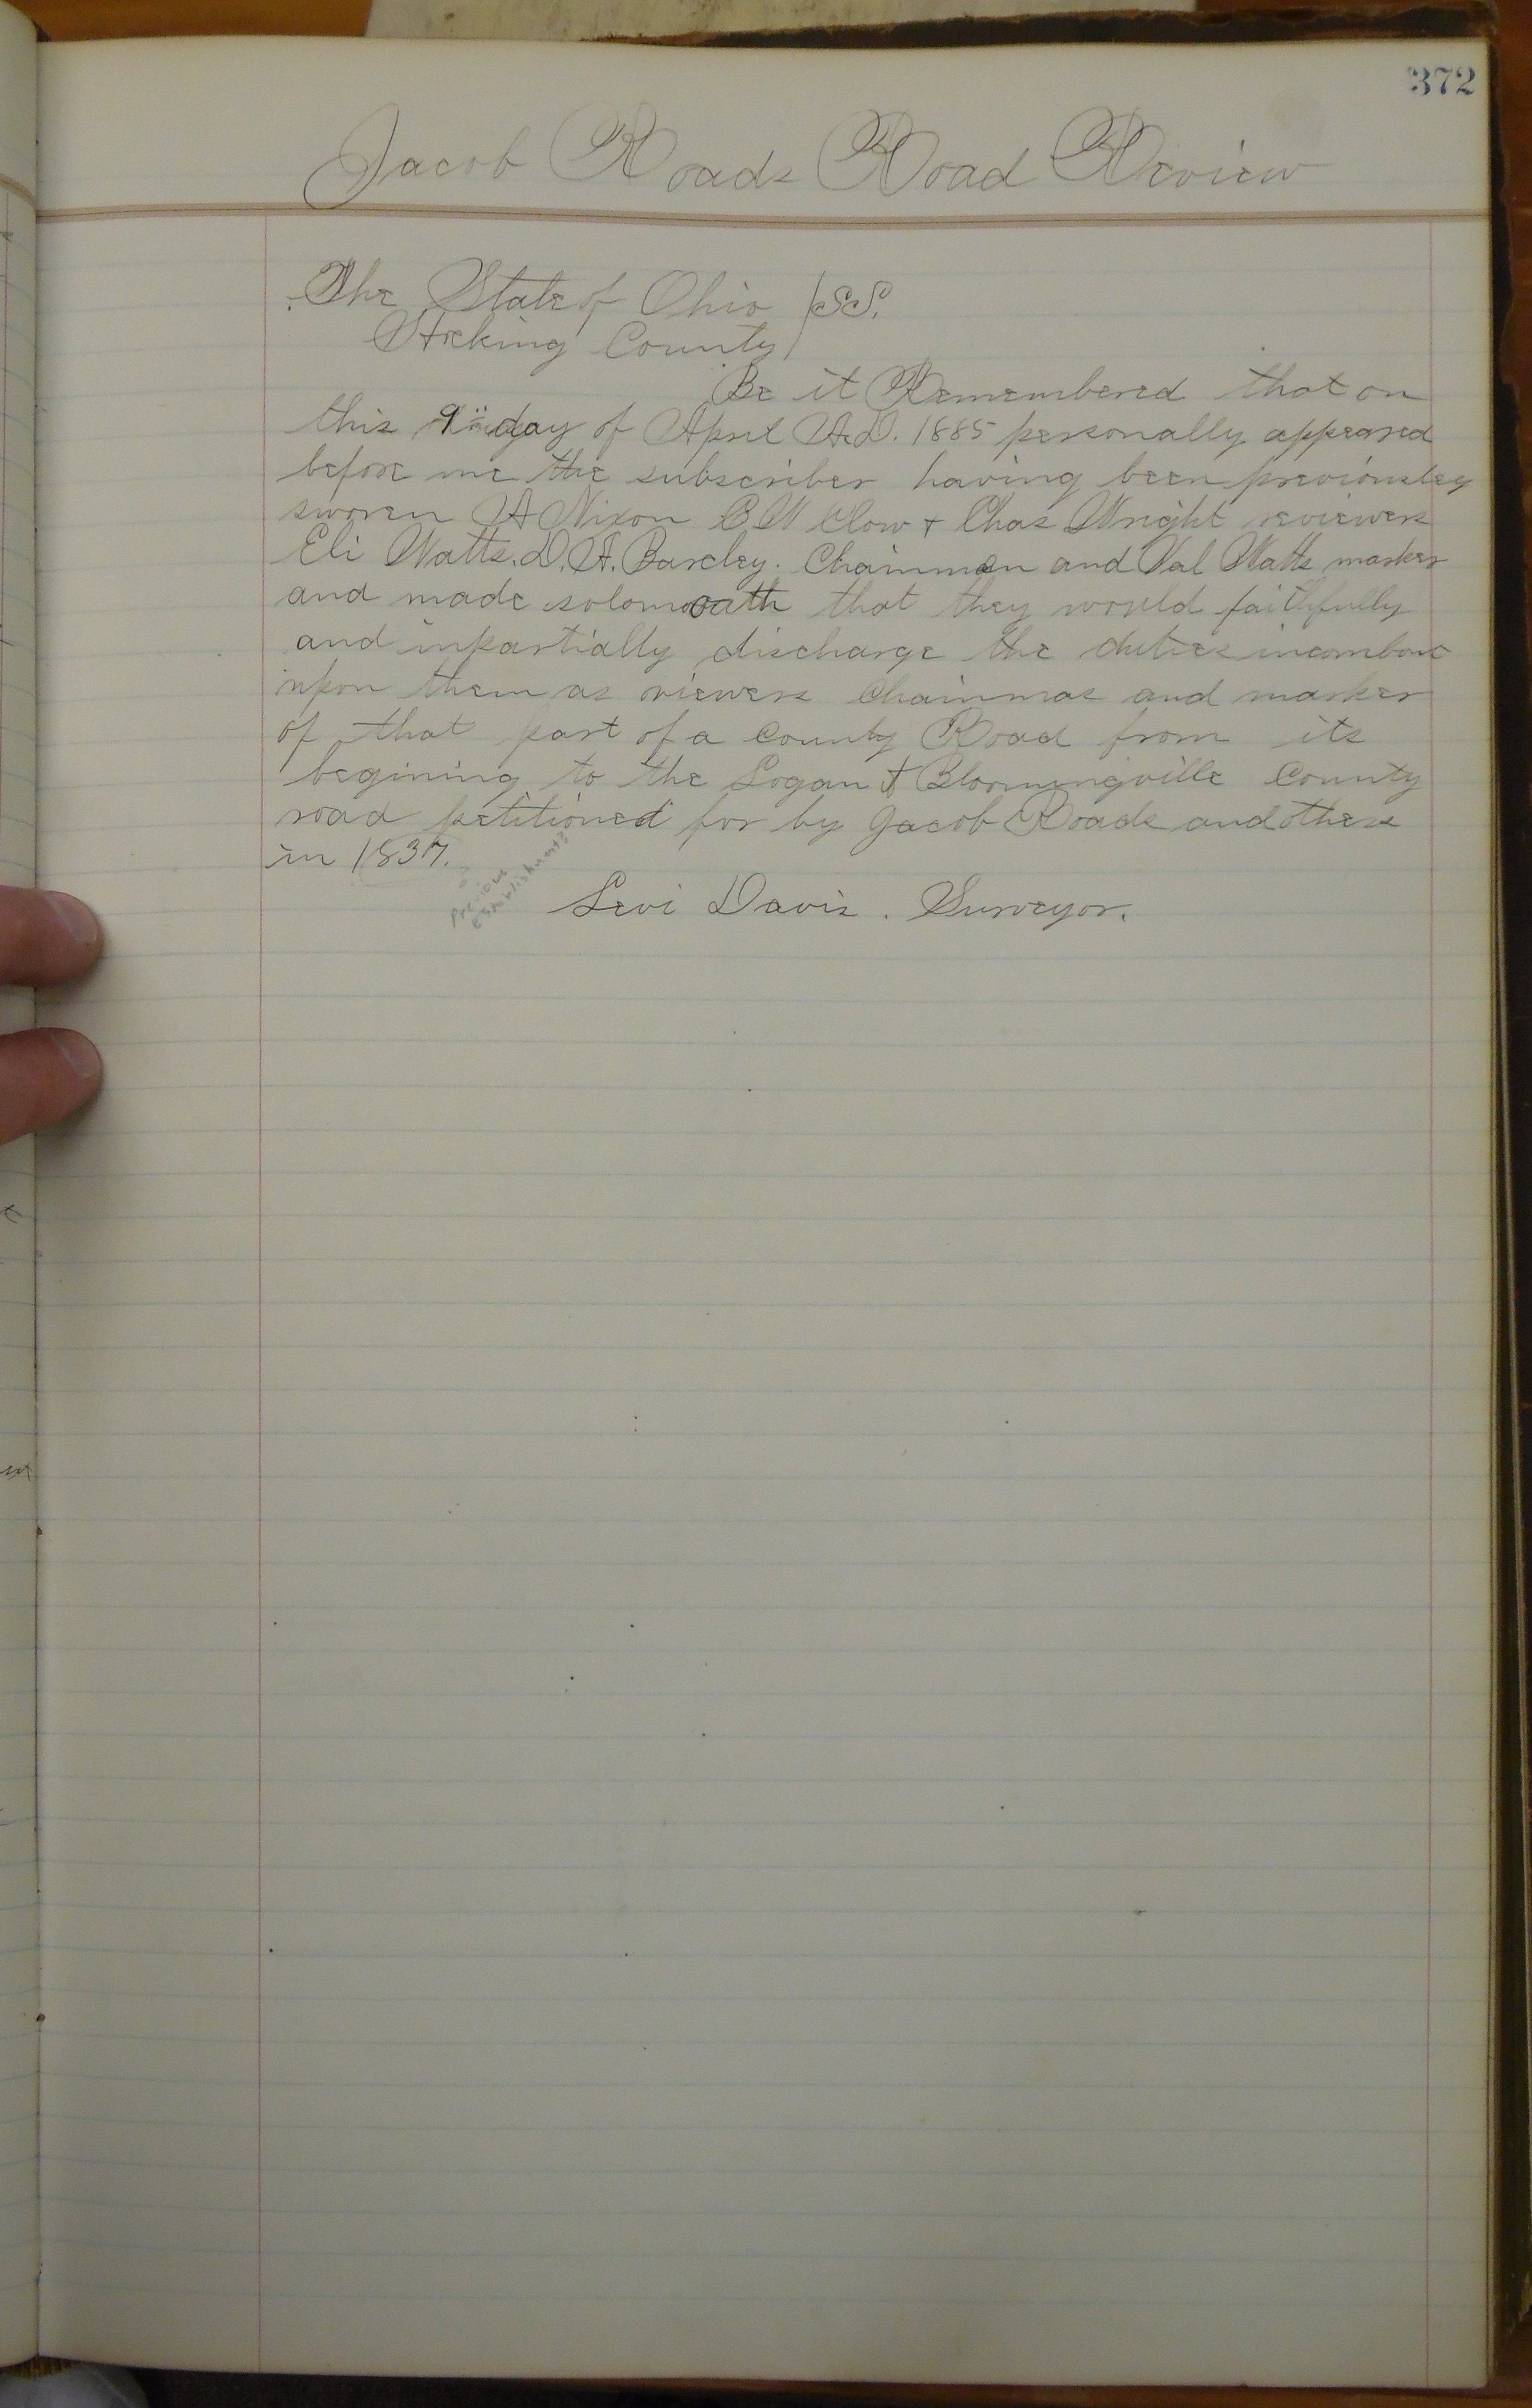 372
Jacob Roads Road Review
The State of Ohio } SS.
Hocking County
Be it Remembered that on
this 9" day of April A.D. 1885 personally appeared
before me the subscriber having been previousley
sworen A Nixon C W Clow + Chas Wright reviewers
Eli Watts. D. A. Barcley. Chainman and Val Watts marker
and made solom oath that they would faithfully
and inpartially discharge the duties incombent
upon them as viewers Chainmas and marker
of that part of a County Road from its
begining to the Logan & Bloomingville County
road petitioned for by Jacob Roads and others
in 1837.
Previous
Establishment?
Levi Davis. Surveyor.